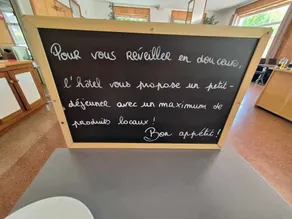 Pour vous réveiller en douceur,
l'hôtel vous propose un petit-
déjeuner avec un maximum de
produits locaux !
Bon appétit !